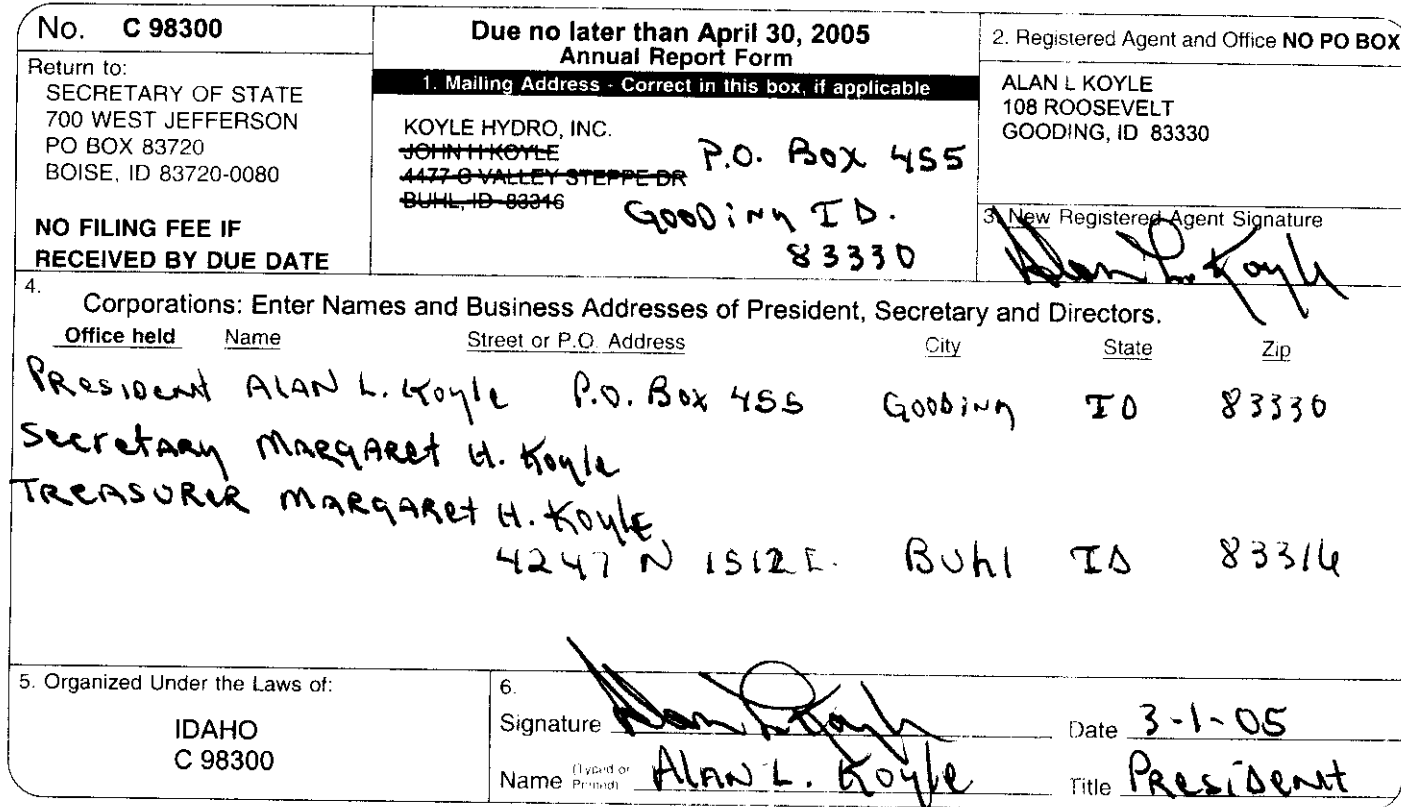 No. C 98300
Return to:
SECRETARY OF STATE
700 WEST JEFFERSON
PO BOX 83720
BOISE, ID 83720-0080
NO FILING FEE IF
RECEIVED BY DUE DATE
Due no later than April 30, 2005
Annual Report Form
1. Mailing Address - Correct in this box, if applicable
KOYLE HYDRO, INC.
JOHN H KOYLE
4477 C VALLEY STEPPE DR
BUHL, ID 83316
P.O. Box 455
GOODiNg ID.
83330
2. Registered Agent and Office NO PO BOX
ALAN L KOYLE
108 ROOSEVELT
GOODING, ID 83330
3. New Registered Agent Signature
Alan L. Koyle
4.
Corporations: Enter Names and Business Addresses of President, Secretary and Directors.
Office held Name Street or P.O. Address City State Zip
PResident ALAN L. Koyle P.O. Box 455 GOODiNg ID 83330
Secretary MARgARet H. Koyle
TREASURER MARgARet H. KoyLE
4247 N 1512 E. Buhl ID 83316
5. Organized Under the Laws of:
IDAHO
C 98300
6.
Signature Alan L Koyle Date 3-1-05
Name (Typed or Printed) ALAN L. Koyle Title PResiDent